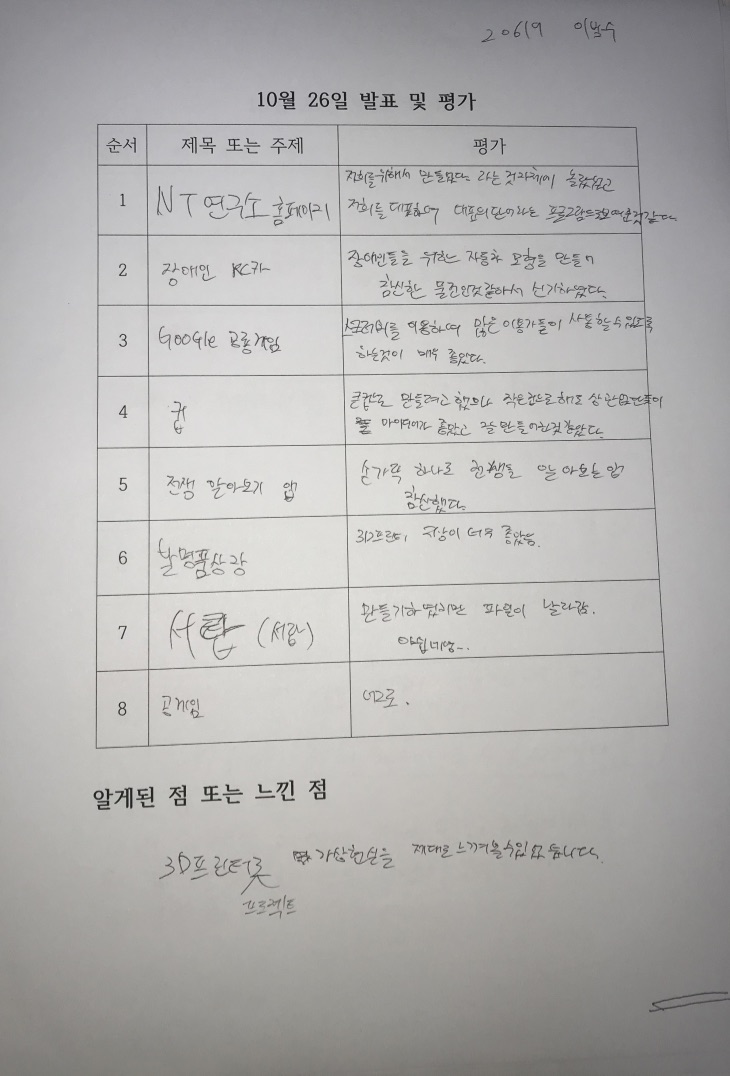 20619 이범수
10월 26일 발표 및 평가
순서 제목 또는 주제 평가
1 NT연구소 홈페이지 저희를위해서 만들었다 라는 것자체에 놀랐었고
저희를 대표하여 대표의단어라는 프로그램으로보여준것같다
2 장애인 RC카 장애인들을 위하는 자동차 모형을 만들어
참신한 물건인것같아서 신기하였다.
3 Google 공룡게임 스크래치를 이용하여 많은 이용자들이 사용할수있도록
하는것이 매우 좋았다.
4 컵 큰컵으로 만들려고 했으나 작은컵으로해도 상관없
아이디어가 좋았고 잘 만들어한것같았다.
5 전쟁 알아보기 앱 손가락 하나로 전쟁을 알아보는 앱
참신했다.
6 발명품상장 3D프린터 상장이 너무 좋았음.
7 서랍 (서랑) 만들기하였지만 파일이 날라감.
아쉽네영...
8 공게임 너므로.
알게된 점 또는 느낀 점
3D프린터로 가상현실을 제대로느껴볼수있었습니다.
프로젝트